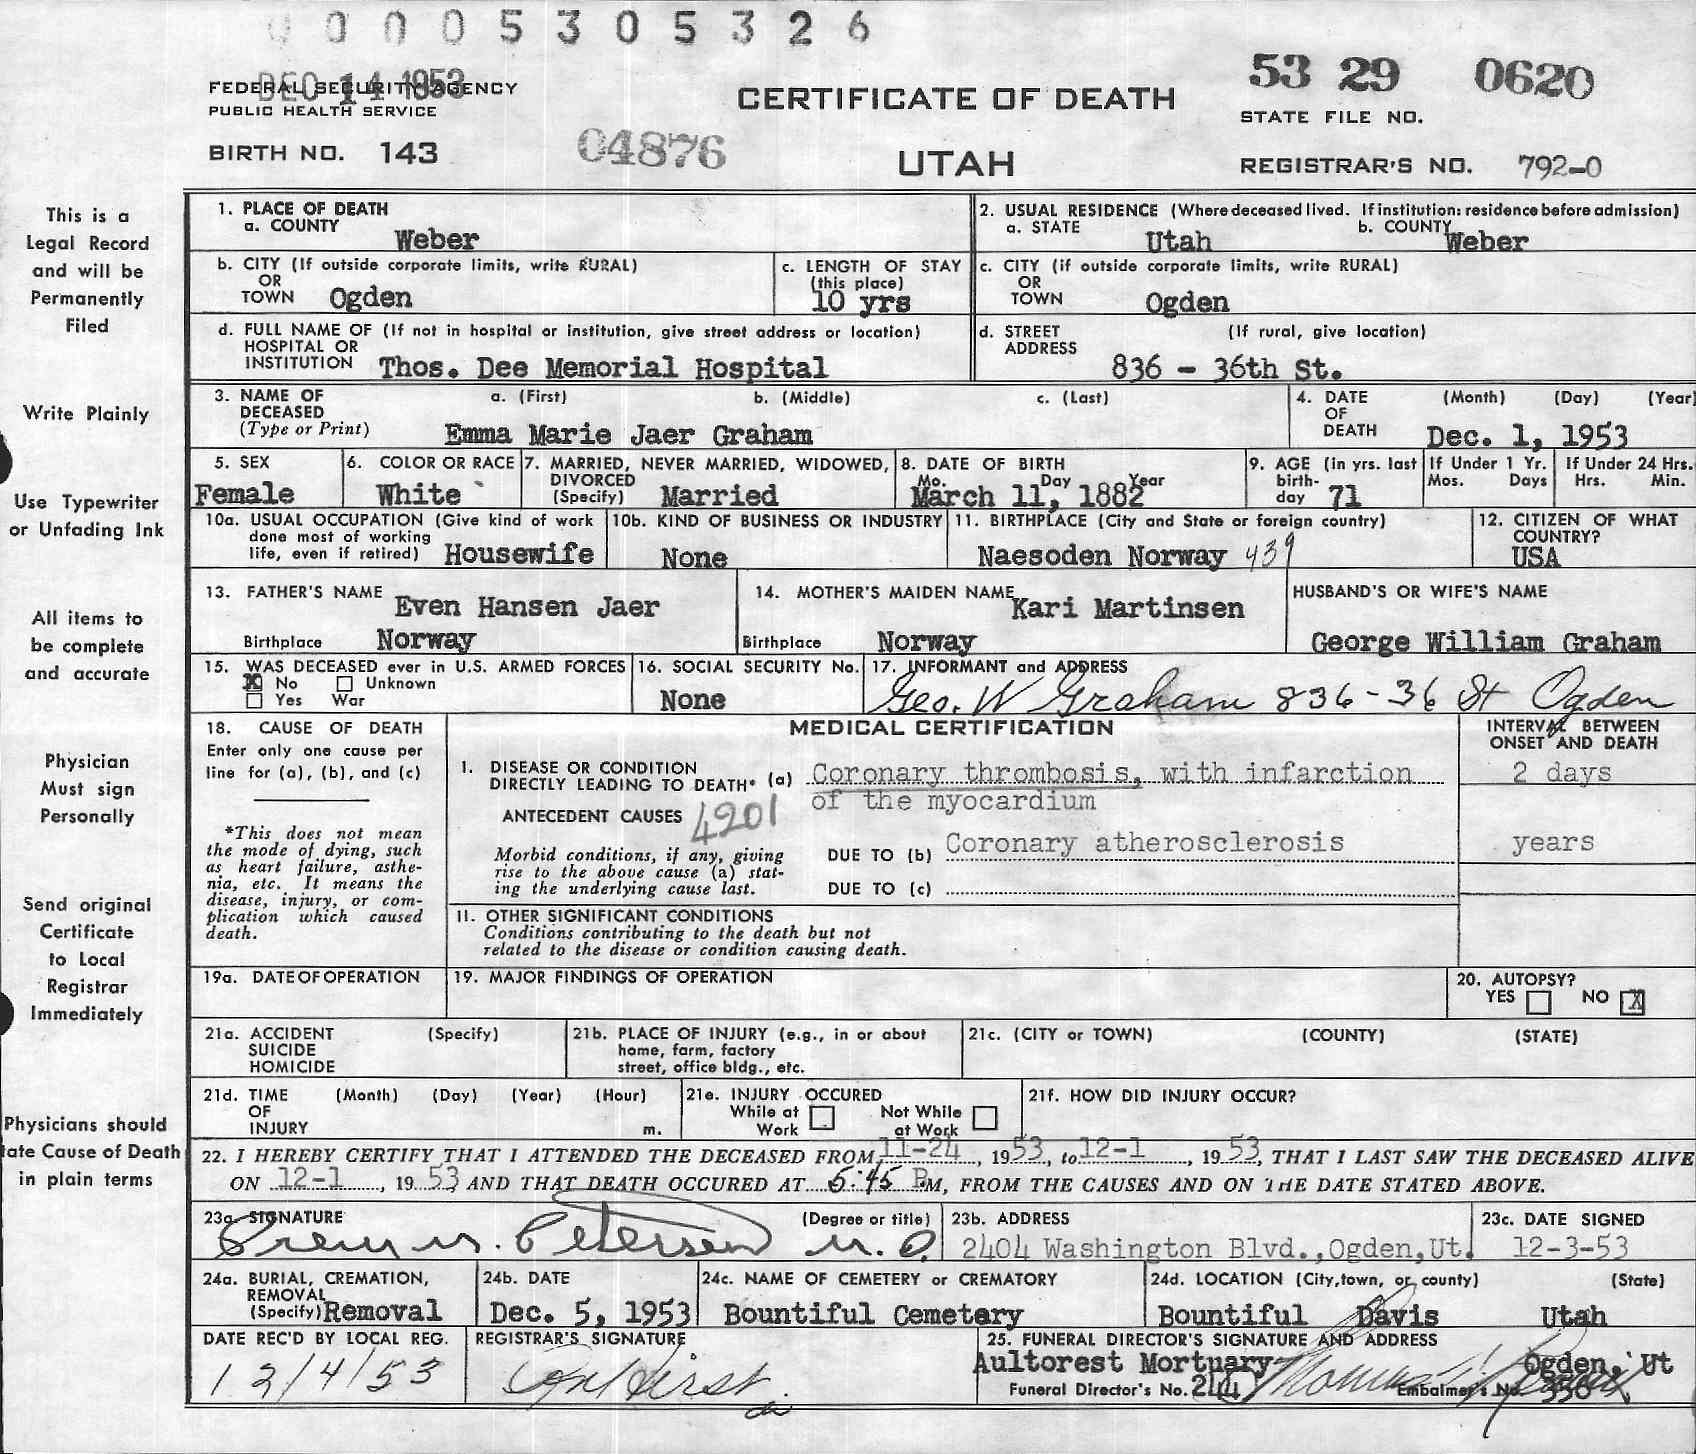 0 0 0 0 5 3 0 5 3 2 6
53 29 0620
FEDERAL SECURITY AGENCY
DEC 14 1953
PUBLIC HEALTH SERVICE
CERTIFICATE OF DEATH
STATE FILE NO.
BIRTH NO. 143
04876
UTAH
REGISTRAR'S NO. 792-0
This is a
Legal Record
and will be
Permanently
Filed
Write Plainly
Use Typewriter
or Unfading Ink
All items to
be complete
and accurate
Physician
Must sign
Personally
Send original
Certificate
to Local
Registrar
Immediately
Physicians should
ate Cause of Death
in plain terms
1. PLACE OF DEATH
a. COUNTY Weber
2. USUAL RESIDENCE (Where deceased lived. If institution: residence before admission)
a. STATE Utah b. COUNTY Weber
b. CITY (If outside corporate limits, write RURAL)
OR
TOWN Ogden
c. LENGTH OF STAY
(this place)
10 yrs
c. CITY (if outside corporate limits, write RURAL)
OR
TOWN Ogden
d. FULL NAME OF (If not in hospital or institution, give street address or location)
HOSPITAL OR
INSTITUTION Thos. Dee Memorial Hospital
d. STREET (If rural, give location)
ADDRESS
836 - 36th St.
3. NAME OF a. (First) b. (Middle) c. (Last)
DECEASED
(Type or Print) Emma Marie Jaer Graham
4. DATE (Month) (Day) (Year)
OF
DEATH Dec. 1, 1953
5. SEX
Female
6. COLOR OR RACE
White
7. MARRIED, NEVER MARRIED, WIDOWED,
DIVORCED
(Specify) Married
8. DATE OF BIRTH
Mo. Day Year
March 11, 1882
9. AGE (in yrs. last
birth-
day 71
If Under 1 Yr.
Mos. Days
If Under 24 Hrs.
Hrs. Min.
10a. USUAL OCCUPATION (Give kind of work
done most of working
life, even if retired) Housewife
10b. KIND OF BUSINESS OR INDUSTRY
None
11. BIRTHPLACE (City and State or foreign country)
Naesoden Norway 439
12. CITIZEN OF WHAT
COUNTRY?
USA
13. FATHER'S NAME Even Hansen Jaer
Birthplace Norway
14. MOTHER'S MAIDEN NAME Kari Martinsen
Birthplace Norway
HUSBAND'S OR WIFE'S NAME
George William Graham
15. WAS DECEASED ever in U.S. ARMED FORCES
X No Unknown
Yes War
16. SOCIAL SECURITY No.
None
17. INFORMANT and ADDRESS
Geo. W Graham 836-36 St Ogden
18. CAUSE OF DEATH
Enter only one cause per
line for (a), (b), and (c)
*This does not mean
the mode of dying, such
as heart failure, asthe-
nia, etc. It means the
disease, injury, or com-
plication which caused
death.
MEDICAL CERTIFICATION
INTERVAL BETWEEN
ONSET AND DEATH
1. DISEASE OR CONDITION
DIRECTLY LEADING TO DEATH* (a) Coronary thrombosis, with infarction 2 days
of the myocardium
ANTECEDENT CAUSES 4201
Morbid conditions, if any, giving
rise to the above cause (a) stat-
ing the underlying cause last.
DUE TO (b) Coronary atherosclerosis years
DUE TO (c)
11. OTHER SIGNIFICANT CONDITIONS
Conditions contributing to the death but not
related to the disease or condition causing death.
19a. DATE OF OPERATION
19. MAJOR FINDINGS OF OPERATION
20. AUTOPSY?
YES NO X
21a. ACCIDENT (Specify)
SUICIDE
HOMICIDE
21b. PLACE OF INJURY (e.g., in or about
home, farm, factory
street, office bldg., etc.
21c. (CITY or TOWN) (COUNTY) (STATE)
21d. TIME (Month) (Day) (Year) (Hour)
OF
INJURY m.
21e. INJURY OCCURED
While at Not While
Work at Work
21f. HOW DID INJURY OCCUR?
22. I HEREBY CERTIFY THAT I ATTENDED THE DECEASED FROM 11-24, 1953, to 12-1, 1953, THAT I LAST SAW THE DECEASED ALIVE
ON 12-1, 1953 AND THAT DEATH OCCURED AT 6:45 PM, FROM THE CAUSES AND ON THE DATE STATED ABOVE.
23a. SIGNATURE (Degree or title)
Petersen M.D.
23b. ADDRESS
2404 Washington Blvd., Ogden, Ut.
23c. DATE SIGNED
12-3-53
24a. BURIAL, CREMATION,
REMOVAL
(Specify) Removal
24b. DATE
Dec. 5, 1953
24c. NAME OF CEMETERY or CREMATORY
Bountiful Cemetery
24d. LOCATION (City, town, or county) (State)
Bountiful Davis Utah
DATE REC'D BY LOCAL REG.
12/4/53
REGISTRAR'S SIGNATURE
25. FUNERAL DIRECTOR'S SIGNATURE AND ADDRESS
Aultorest Mortuary Ogden, Ut
Funeral Director's No. 244 Embalmer's No. 350